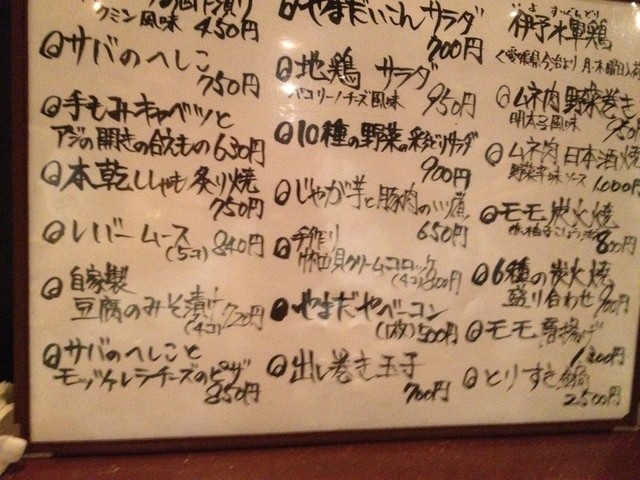 クミン風味 450円
サバのへしこ
750円
手もみキャベツと
アジの開きの合えもの 630円
本乾ししゃも炙り焼
750円
レバームース
(5コ) 840円
自家製
豆腐のみそ漬け
(4コ) 720円
サバのへしこと
モッツァレラチーズのピザ
850円
やまだいこんサラダ
700円
地鶏 サラダ
パコリーノチーズ風味 950円
10種の野菜の彩どりサラダ
900円
じゃが芋と豚肉の
650円
手作り
クリームコロッケ
(4コ) 800円
やまだやベーコン
500円
出し巻き玉子
700円
伊予水軍鶏
<愛媛県今治より 月・木曜日入荷
ムネ肉 野菜巻き
明太子風味
ムネ肉 日本酒焼
1,000円
モモ 炭火焼
800円
6種の炭火焼
盛り合わせ 900円
モモ 唐揚げ
とりすき鍋
2,500円